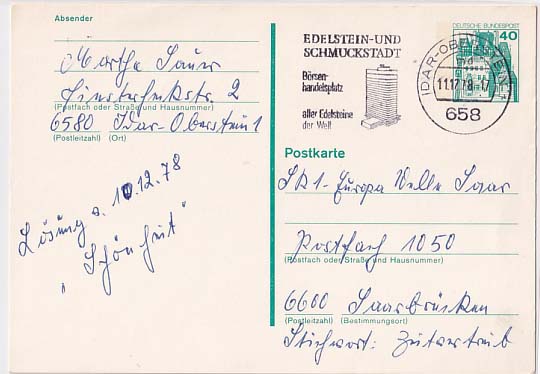 Absender
Martha Sauer
2
(Postfach oder Straße und Hausnummer)
6580 Idar-Oberstein 1
(Postleitzahl) (Ort)
Lösung v. 10.12.78
"Schönheit"
EDELSTEIN-UND
SCHMUCKSTADT
Börsen-
handelsplatz
aller Edelsteine
der Welt
DEUTSCHE BUNDESPOST
40
IDAR-OBERSTEIN
11.12.78
658
Postkarte
SR1-Europa Welle Saar
Postfach 1050
(Postfach oder Straße und Hausnummer)
6600 Saarbrücken
(Postleitzahl) (Bestimmungsort)
Stichwort: Zeitvertreib